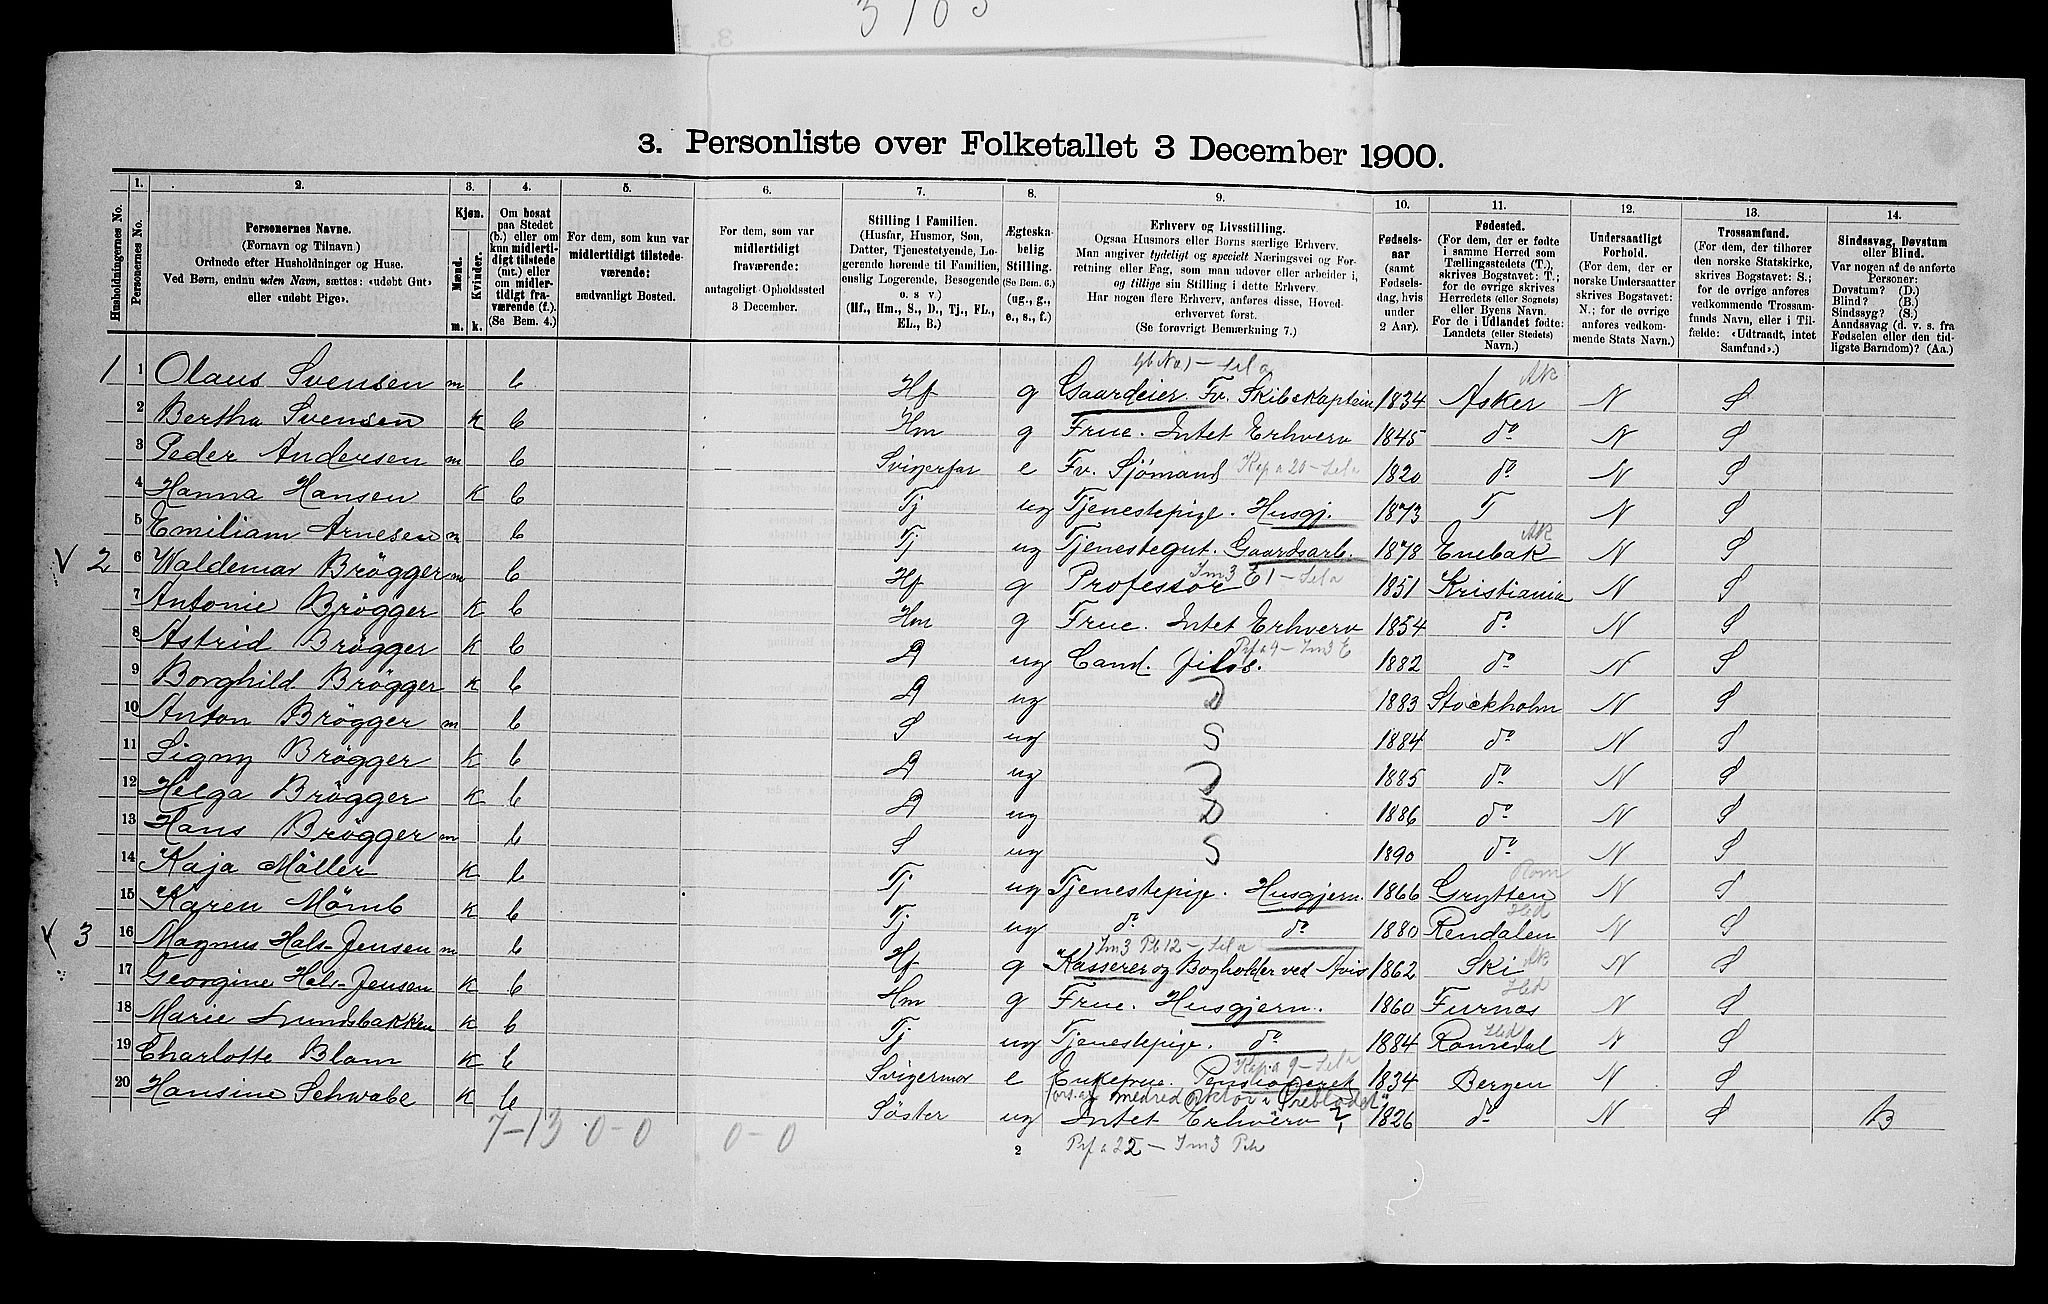 3. Personliste over Folketallet 3 December 1900.
Husholdningernes No.
1. Personernes No.
2. Personernes Navne.
(Fornavn og Tilnavn.)
Ordnede efter Husholdninger og Huse.
Ved Børn, endnu uden Navn, sættes: «udøbt Gut»
eller «udøbt Pige».
3. Kjøn.
Mænd. Kvinder.
m. k.
4. Om bosat
paa Stedet
(b.) eller om
kun midlerti-
digt tilstede
(mt.) eller
om midler-
tidigt fra-
værende (f.).
(Se Bem. 4.)
5. For dem, som kun var
midlertidigt tilstede-
værende:
sædvanligt Bosted.
6. For dem, som var
midlertidigt
fraværende:
antageligt Opholdssted
3 December.
7. Stilling i Familien.
(Husfar, Husmor, Søn,
Datter, Tjenestetyende, Lo-
gerende hørende til Familien,
enslig Logerende, Besøgende
o. s. v.)
(Hf., Hm., S., D., Tj., FL.,
EL., B.)
8. Ægteska-
belig
Stilling.
(Se Bem. 6.)
(ug., g.,
e., s., f.)
9. Erhverv og Livsstilling.
Ogsaa Husmors eller Børns særlige Erhverv.
Man angiver tydeligt og specielt Næringsvei og For-
retning eller Fag, som man udøver eller arbeider i,
og tillige sin Stilling i dette Erhverv.
Har nogen flere Erhverv, anføres disse, Hoved-
erhvervet først.
(Se forøvrigt Bemærkning 7.)
10. Fødsels-
aar
(samt
Fødsels-
dag, hvis
under
2 Aar).
11. Fødested.
(For dem, der er fødte
i samme Herred som
Tællingsstedets (T.),
skrives Bogstavet: T;
for de øvrige skrives
Herredets (eller Sognets)
eller Byens Navn.
For de i Udlandet fødte:
Landets (eller Stedets)
Navn.)
12. Undersaatligt
Forhold.
(For dem, der er
norske Undersaatter
skrives Bogstavet:
N.; for de øvrige
anføres vedkom-
mende Stats Navn.)
13. Trossamfund.
(For dem, der tilhører
den norske Statskirke,
skrives Bogstavet: S.;
for de øvrige anføres
vedkommende Trossam-
funds Navn, eller i Til-
fælde: «Udtraadt, intet
Samfund».)
14. Sindssvag, Døvstum
eller Blind.
Var nogen af de anførte
Personer:
Døvstum? (D.)
Blind? (B.)
Sindssyg? (S.)
Aandssvag (d. v. s. fra
Fødselen eller den tid-
ligste Barndom)? (Aa.)
1 1 Olaus Svensen m b Hf g Gaardeier. Fv. Skibskaptein 1834 Asker N S
2 Bertha Svensen K b Hm g Frue. Intet Erhverv 1845 do N S
3 Peder Andersen m b Svigerfar e Fv. Sjømand 1820 do N S
4 Hanna Hansen K b Tj ug Tjenestepige. Husgj. 1873 T N S
5 Emiliam Arnesen m b Tj ug Tjenestegut. Gaardsarb. 1878 Enebak N S
2 6 Waldemar Brøgger m b Hf g Professor 1851 Kristiania N S
7 Antonie Brøgger K b Hm g Frue. Intet Erhverv 1854 do N S
8 Astrid Brøgger K b D ug Cand. filos. 1882 do N S
9 Borghild Brøgger K b D ug D 1883 Stockholm N S
10 Anton Brøgger m b S ug S 1884 do N S
11 Signy Brøgger K b D ug D 1885 do N S
12 Helga Brøgger K b D ug D 1886 do N S
13 Hans Brøgger m b S ug S 1890 do N S
14 Kaja Möller K b Tj ug Tjenestepige. Husgjern. 1866 Grytten N S
15 Karen Mömb K b Tj ug do do 1880 Rendalen N S
3 16 Magnus Hals-Jensen m b Hf g Kasserer og Bogholder ved Avis 1862 Ski N S
17 Georgine Hals-Jensen K b Hm g Frue. Husgjern. 1860 Furnæs N S
18 Marie Lundsbakken K b Tj ug Tjenestepige. do 1884 Romedal N S
19 Charlotte Blom K b Svigermor e Enkefrue. Pensioneret 1834 Bergen N S
20 Hansine Schwabe K b Søster ug Intet Erhverv 1826 do N S B
7-13 0-0 0-0
2